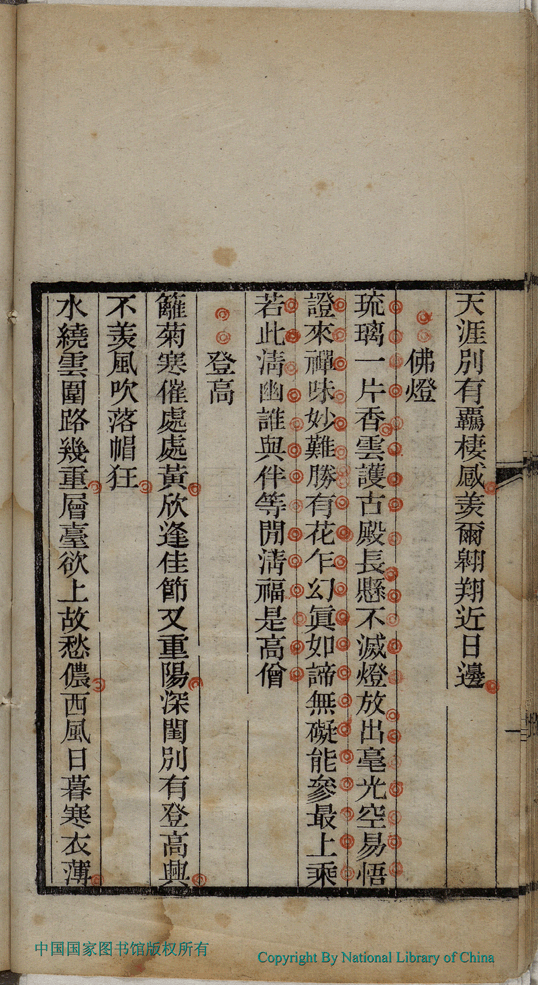 天涯別有覊棲感羨爾翱翔近日邊
佛燈
琉璃一片香雲護古殿長懸不滅燈放出毫光空易悟
證來禪味妙難勝有花乍幻眞如諦無礙能參最上乘
若此淸幽誰與伴等閒淸福是高僧
登高
籬菊寒催處處黃欣逢佳節又重陽深閨別有登高興
不羨風吹落帽狂
水繞雲圍路幾重層臺欲上故愁儂西風日暮寒衣薄
中国国家图书馆版权所有
Copyright By National Library of China